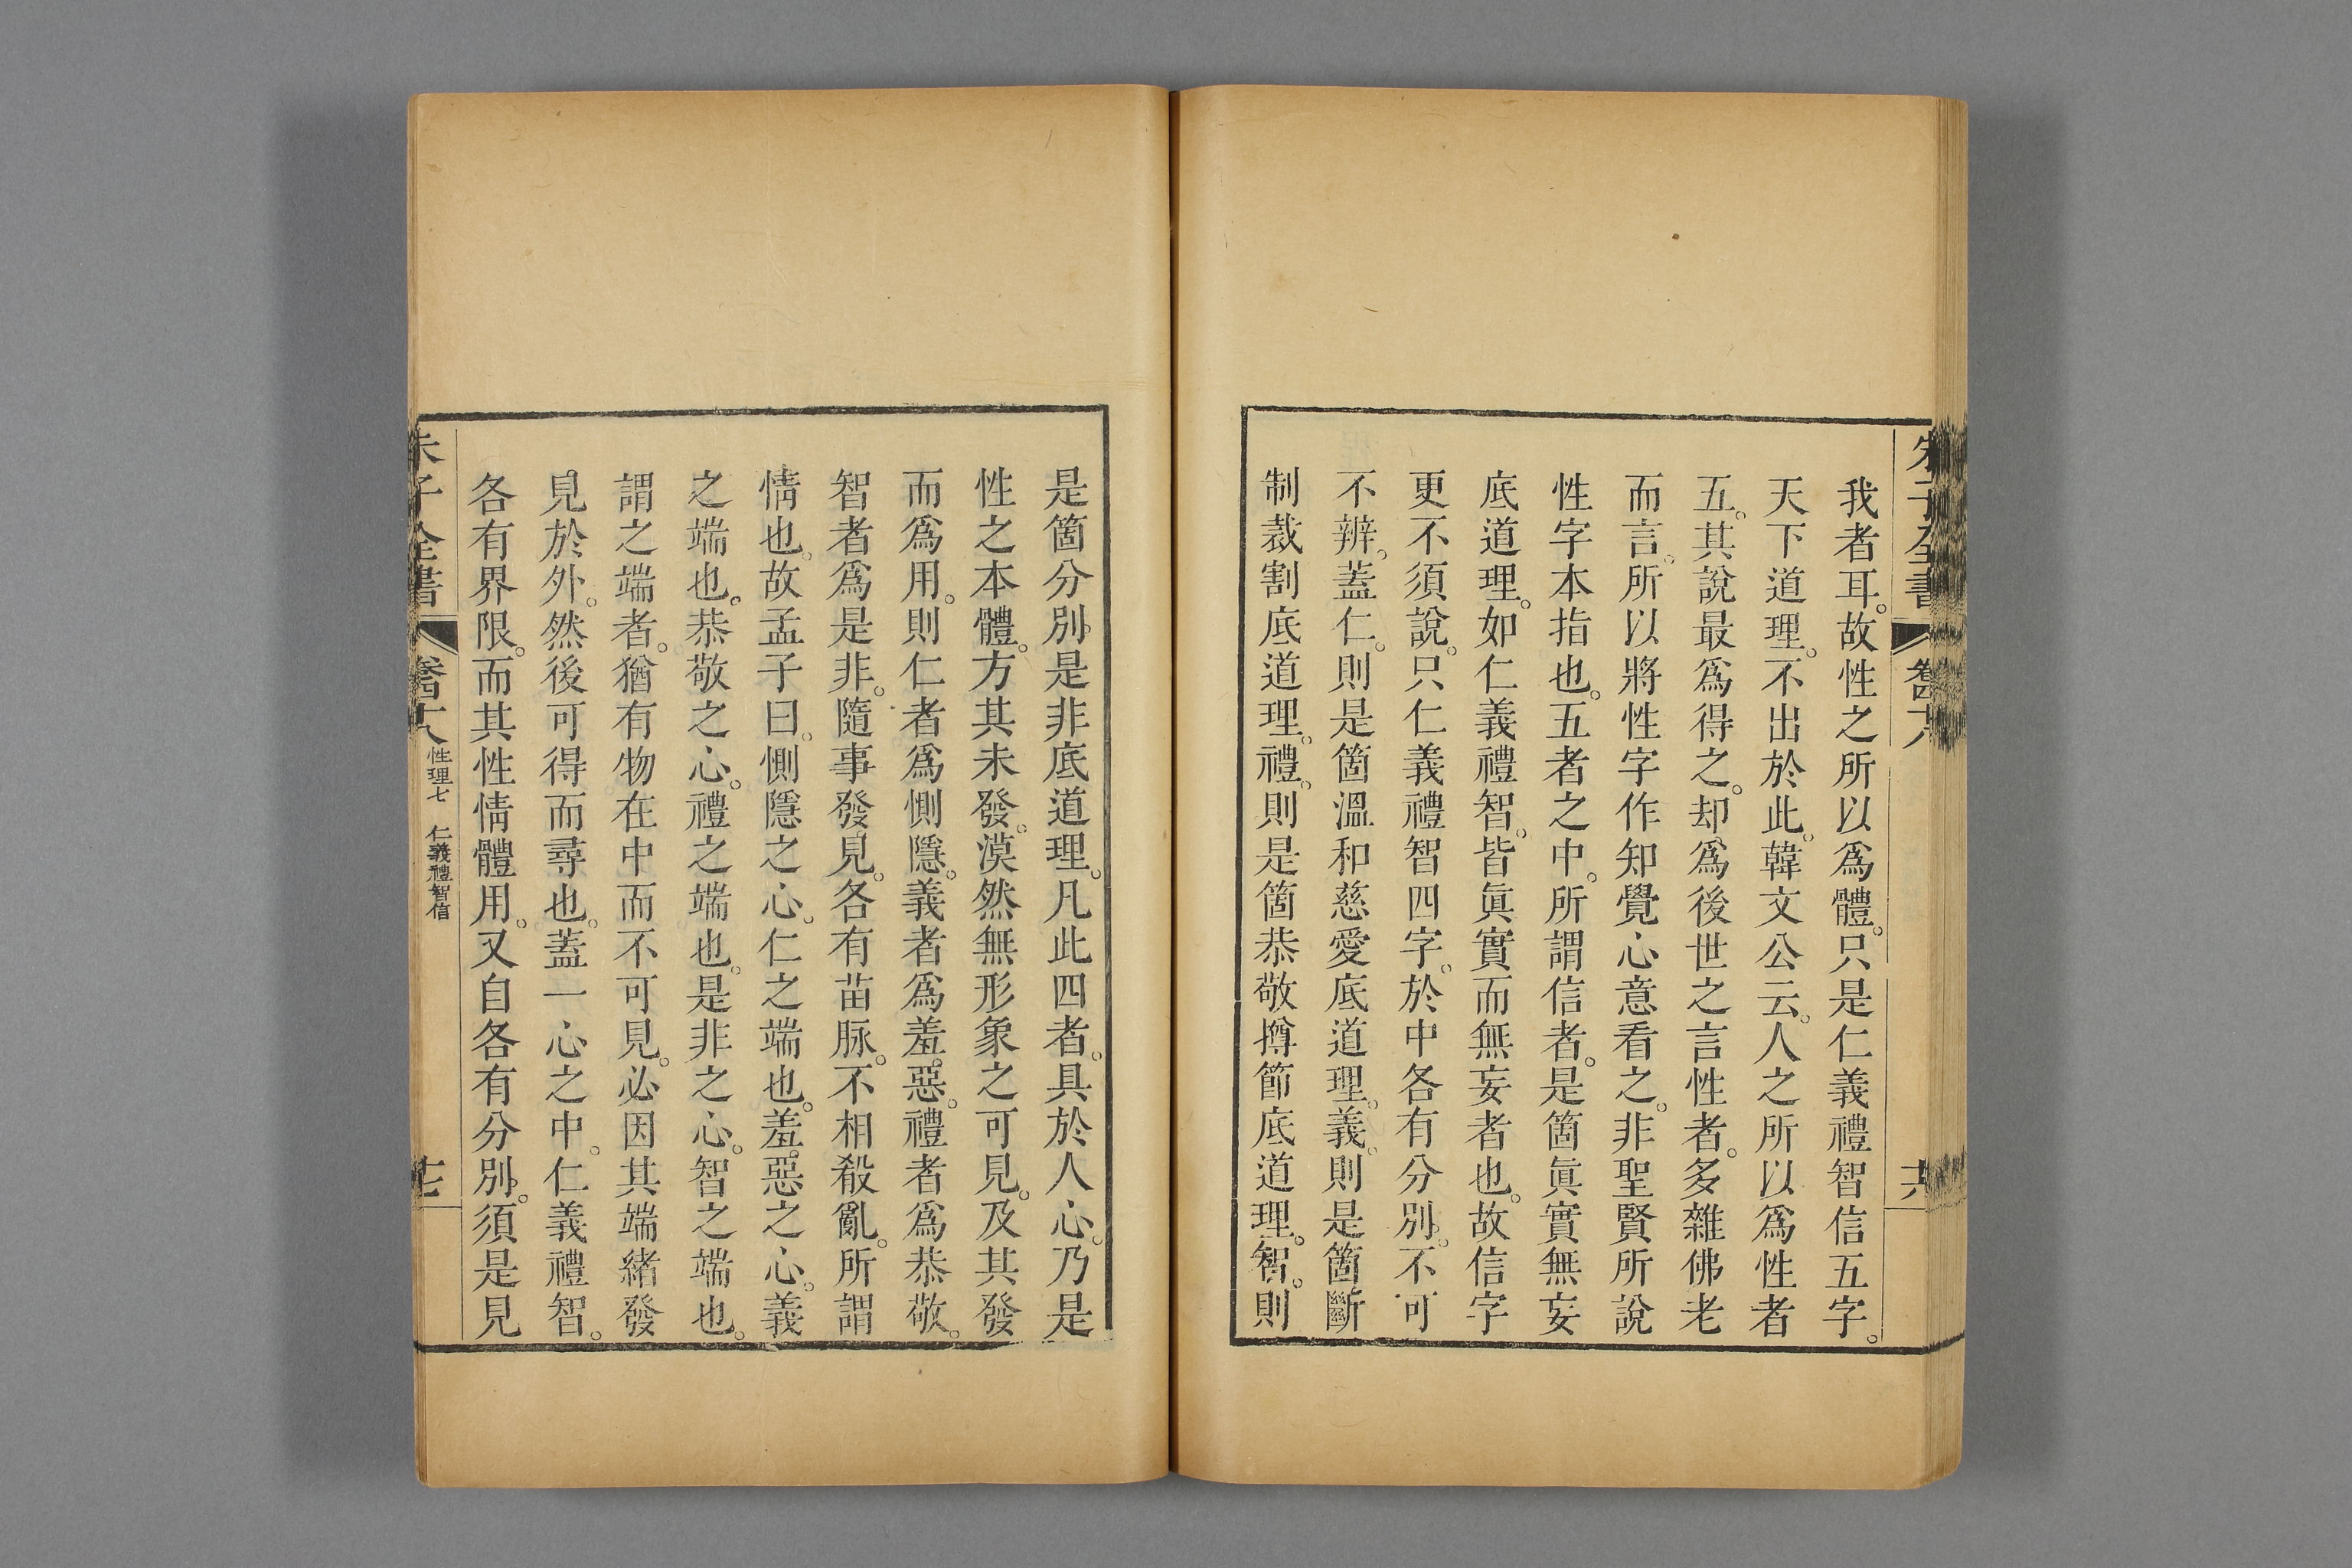 我者耳。故性之所以爲體。只是仁義禮智信五字。
天下道理。不出於此。韓文公云。人之所以爲性者
五。其說最爲得之。却爲後世之言性者。多雜佛老
而言。所以將性字作知覺心意看之。非聖賢所說
性字本指也。五者之中。所謂信者。是箇眞實無妄
底道理。如仁義禮智。皆眞實而無妄者也。故信字
更不須說。只仁義禮智四字。於中各有分別。不可
不辨。蓋仁。則是箇溫和慈愛底道理。義。則是箇斷
制裁割底道理。禮。則是箇恭敬撙節底道理。智。則
是箇分別是非底道理。凡此四者。具於人心。乃是
性之本體。方其未發。漠然無形象之可見。及其發
而爲用。則仁者爲惻隱。義者爲羞惡。禮者爲恭敬。
智者爲是非。隨事發見。各有苗脉。不相殽亂。所謂
情也。故孟子曰。惻隱之心。仁之端也。羞惡之心。義
之端也。恭敬之心。禮之端也。是非之心。智之端也。
謂之端者。猶有物在中而不可見。必因其端緒發
見於外。然後可得而尋也。蓋一心之中。仁義禮智。
各有界限。而其性情體用。又自各有分別。須是見
朱子全書 卷四十八 性理七 仁義禮智信 十七